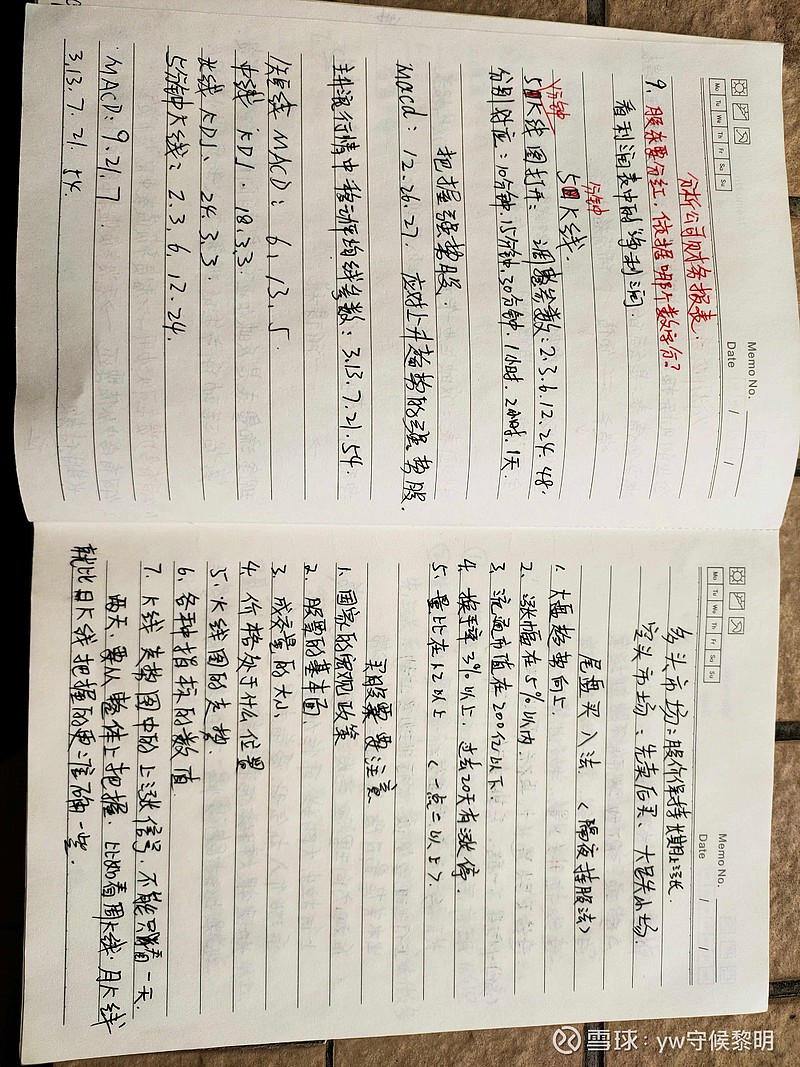 Memo No.
Date / /
Mo Tu We Th Fr Sa Su
分析公司财务报表.
9. 股东要分红, 依据哪个数字分?
看利润表中的净利润.
分钟
5K线.
分钟
5K线图打开: 调整分数: 2.3.6.12.24.48.
分别对应: 10分钟.15分钟.30分钟.1小时.2小时.1天.
把握强势股.
Macd: 12.26.27. 应对上升趋势的强势股.
主升浪行情中移动平均线参数: 3.13.7.21.54.
短线 MACD: 6.13.5.
中线 KDJ. 18.3.3
长线 KDJ. 24.3.3
5分钟K线: 2.3.6.12.24.
MACD: 9.21.7
3.13.7.21.54.
Memo No.
Date / /
Mo Tu We Th Fr Sa Su
多头市场: 股价保持长期上涨.
空头市场: 先卖后买、
尾盘买入法. <隔夜持股法>
1. 大盘趋势向上.
2. 涨幅在5%以内.
3. 流通市值在200亿以下.
4. 换手率3%以上. 过去20天有涨停.
5. 量比在1.2以上 <一点二以上>.
买股票要注意
1. 国家的宏观政策
2. 股票的基本面
3. 成交量的大小
4. 价格处于什么位置
5. K线图的走势
6. 各种指标的数值
7. K线走势图中的上涨信号, 不能只看一天.
两天, 要从整体上把握. 比如看周K线. 月K线
就比日K线把握的更准确一些.
雪球: yw守候黎明